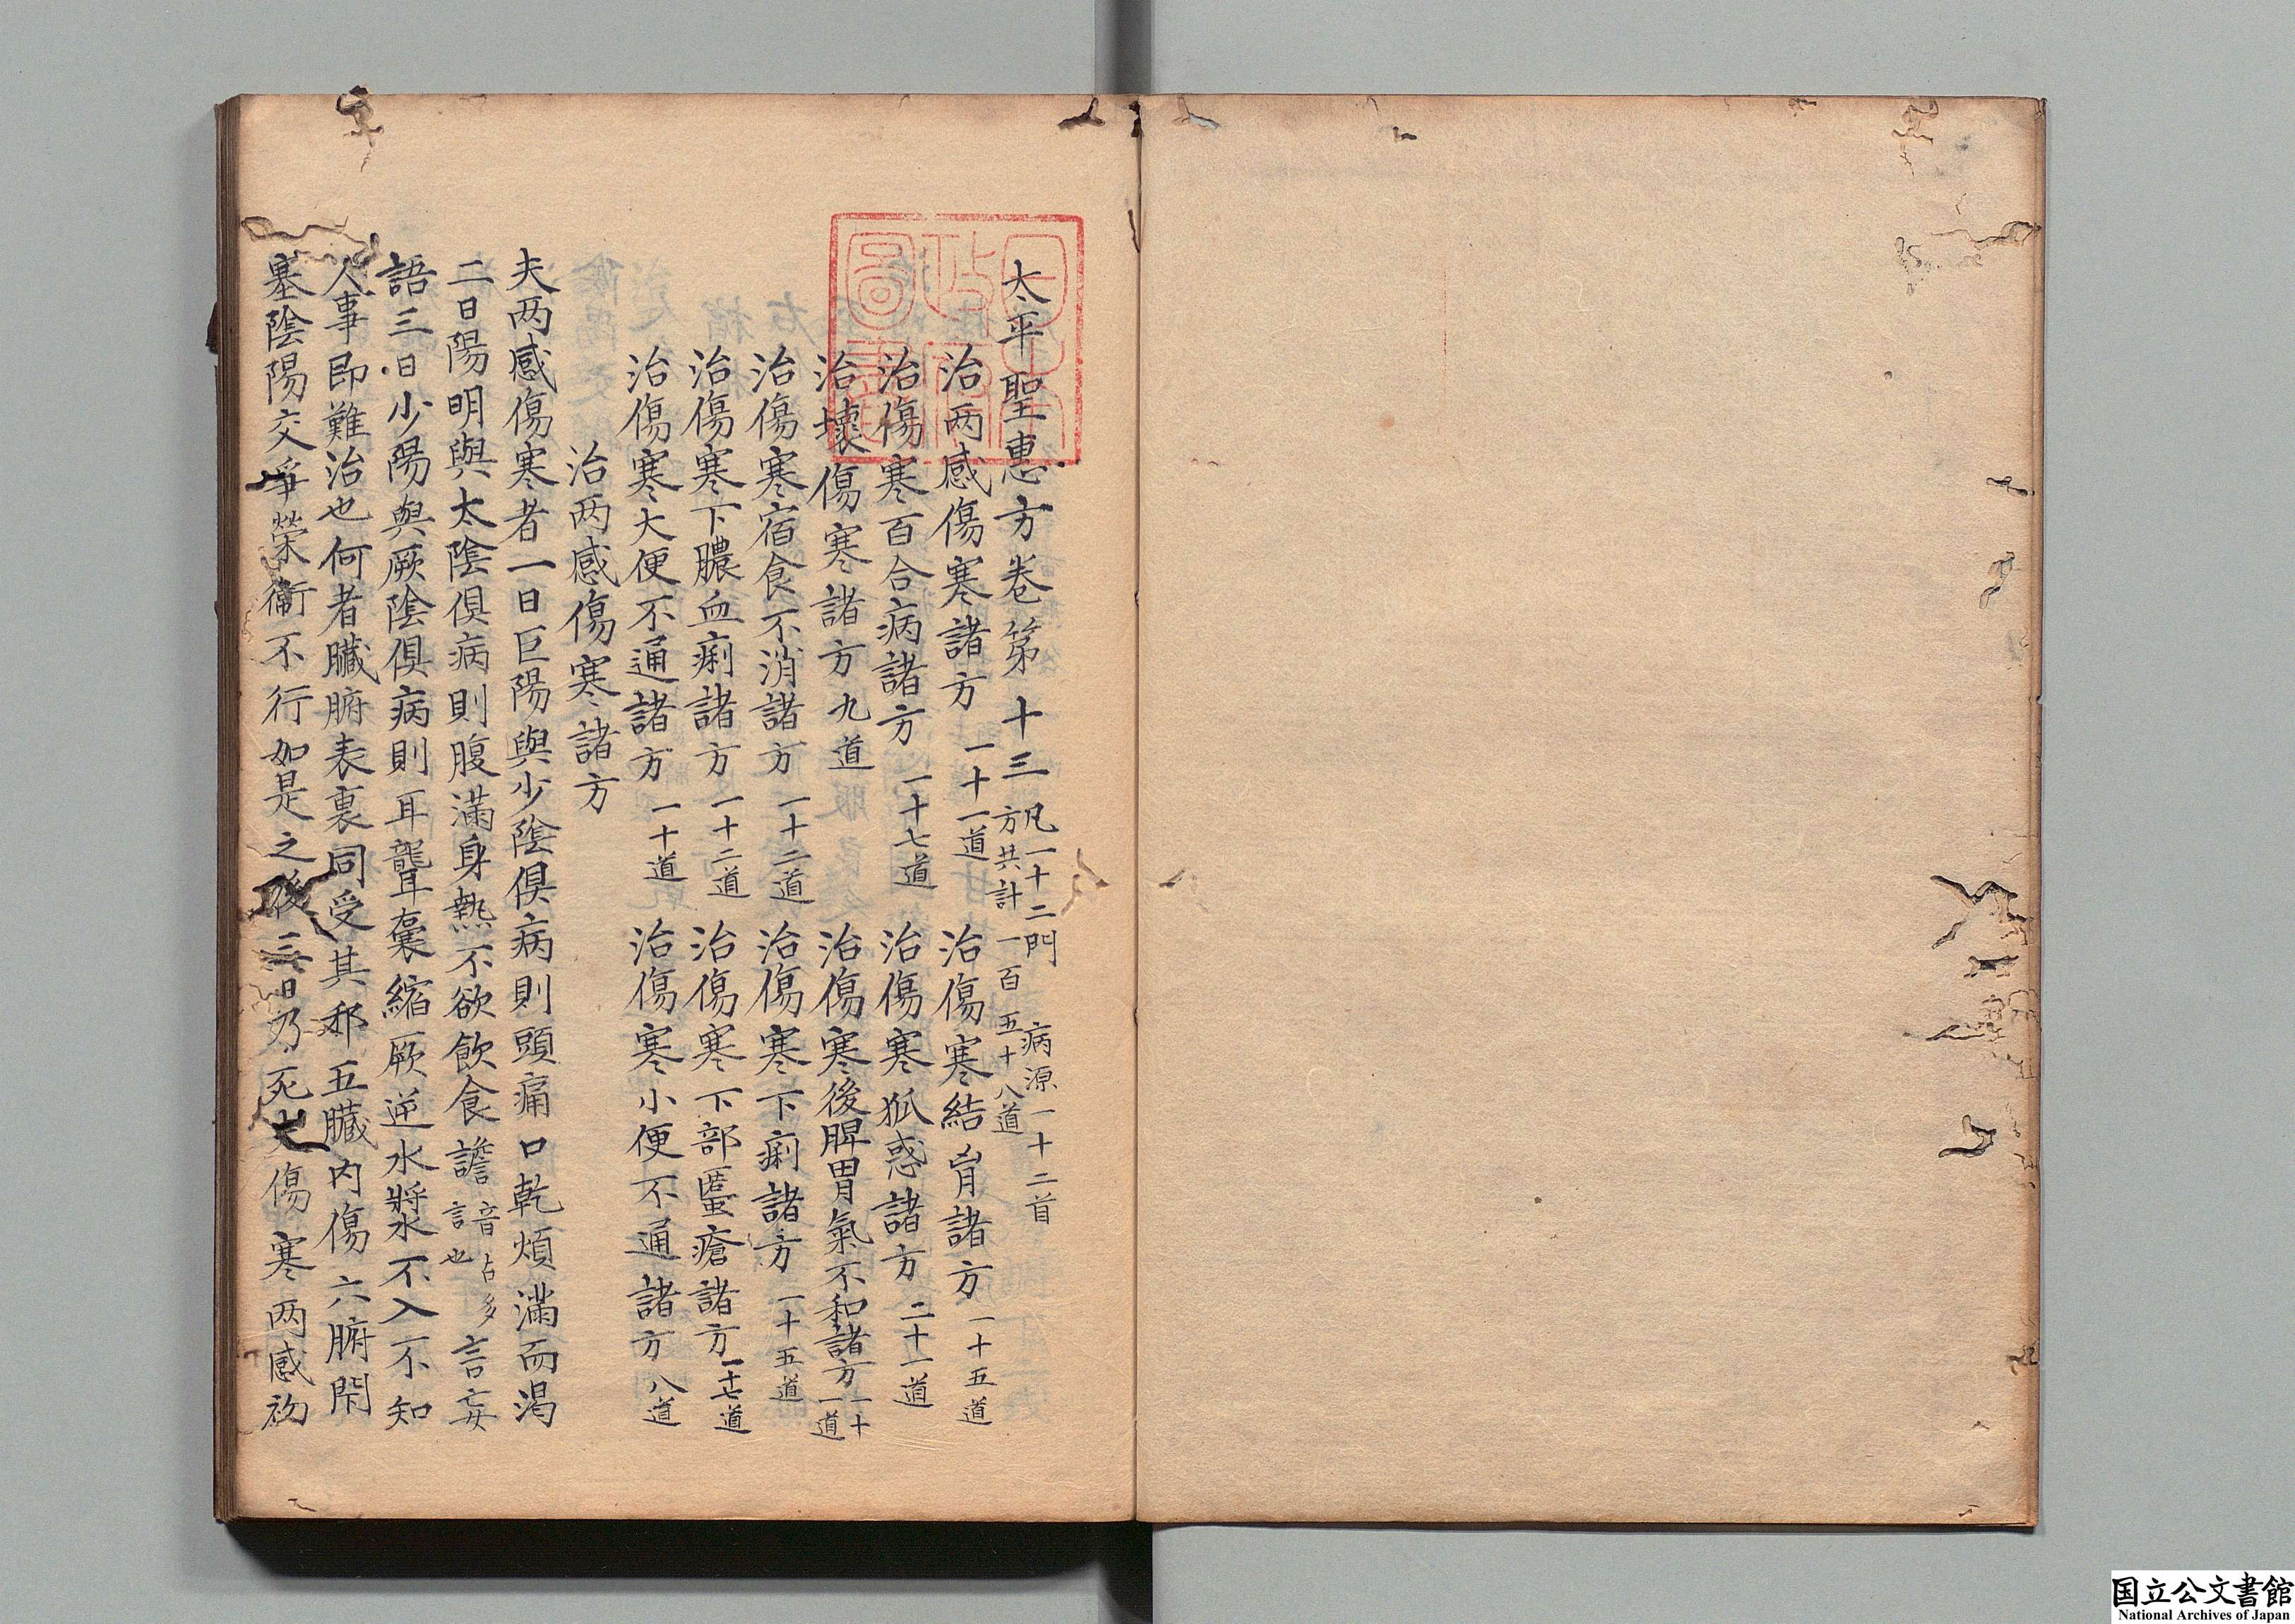 太平聖惠方卷第十三 凡一十二門 病源一十二首 方共計一百五十八道
治两感傷寒諸方 一十一道 治傷寒結胷諸方 一十五道
治傷寒百合病諸方 一十七道 治傷寒狐惑諸方 二十一道
治壞傷寒諸方九道 治傷寒後脾胃氣不和諸方 一十一道
治傷寒宿食不消諸方 一十二道 治傷寒下痢諸方 一十五道
治傷寒下膿血痢諸方 一十二道 治傷寒下部䘌瘡諸方 一十七道
治傷寒大便不通諸方 一十道 治傷寒小便不通諸方 八道
治两感傷寒諸方
夫两感傷寒者一日巨陽與少陰俱病則頭痛口乾煩滿而渴
二日陽明與太陰俱病則腹滿身熱不欲飲食譫 音占多言也 言妄
語三日少陽與厥陰俱病則耳聾囊縮厥逆水漿不入不知
人事即難治也何者臟腑表裏同受其邪五臟内傷六腑閇
塞陰陽交爭榮衞不行如是之後三日乃死夫傷寒两感初
国立公文書館
National Archives of Japan